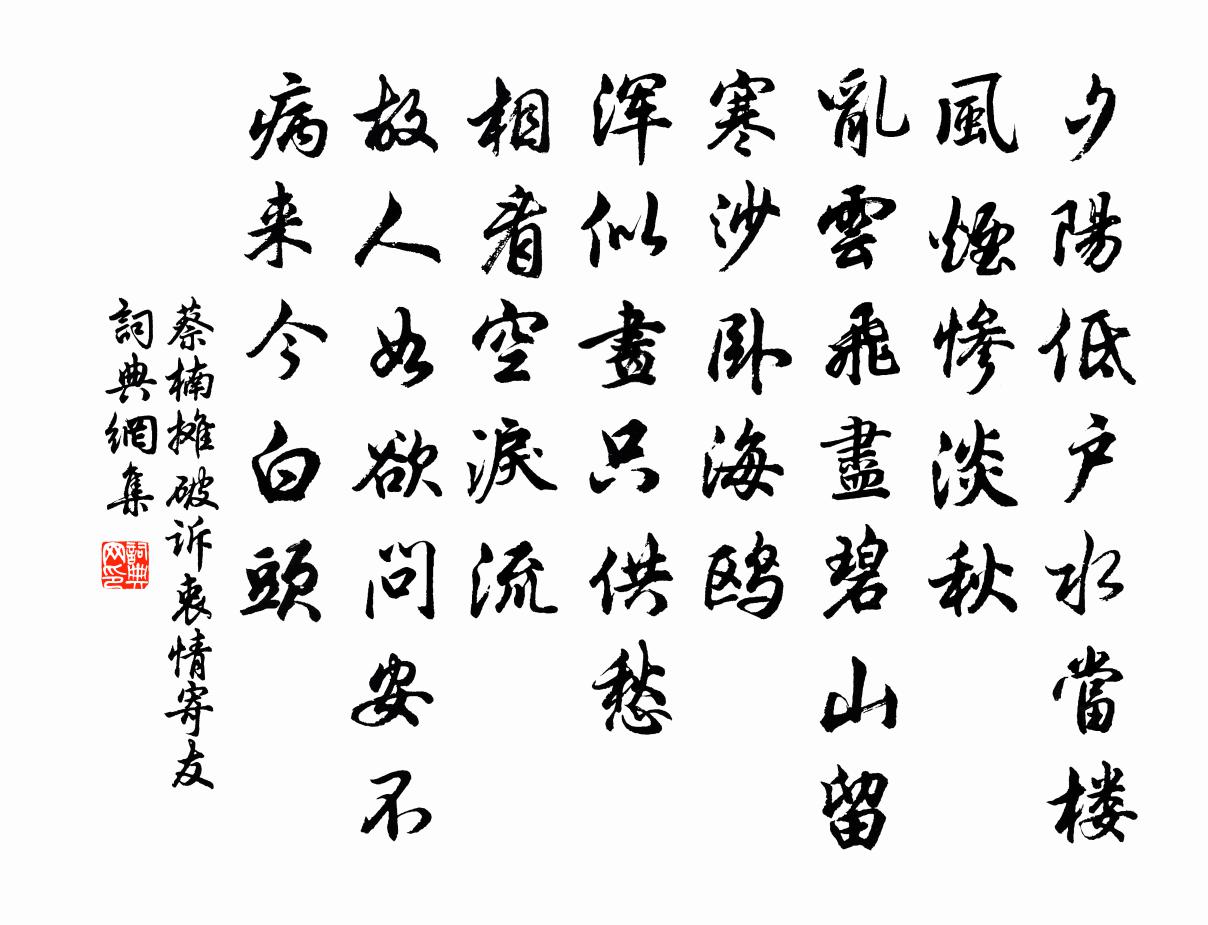 夕陽低户水當楼
風煙慘淡秋
亂雲飛盡碧山留
寒沙卧海鸥
渾似畫只供愁
相看空淚流
故人如欲问安不
病来今白頭
蔡楠摊破诉衷情寄友
詞典網集
詞典网印